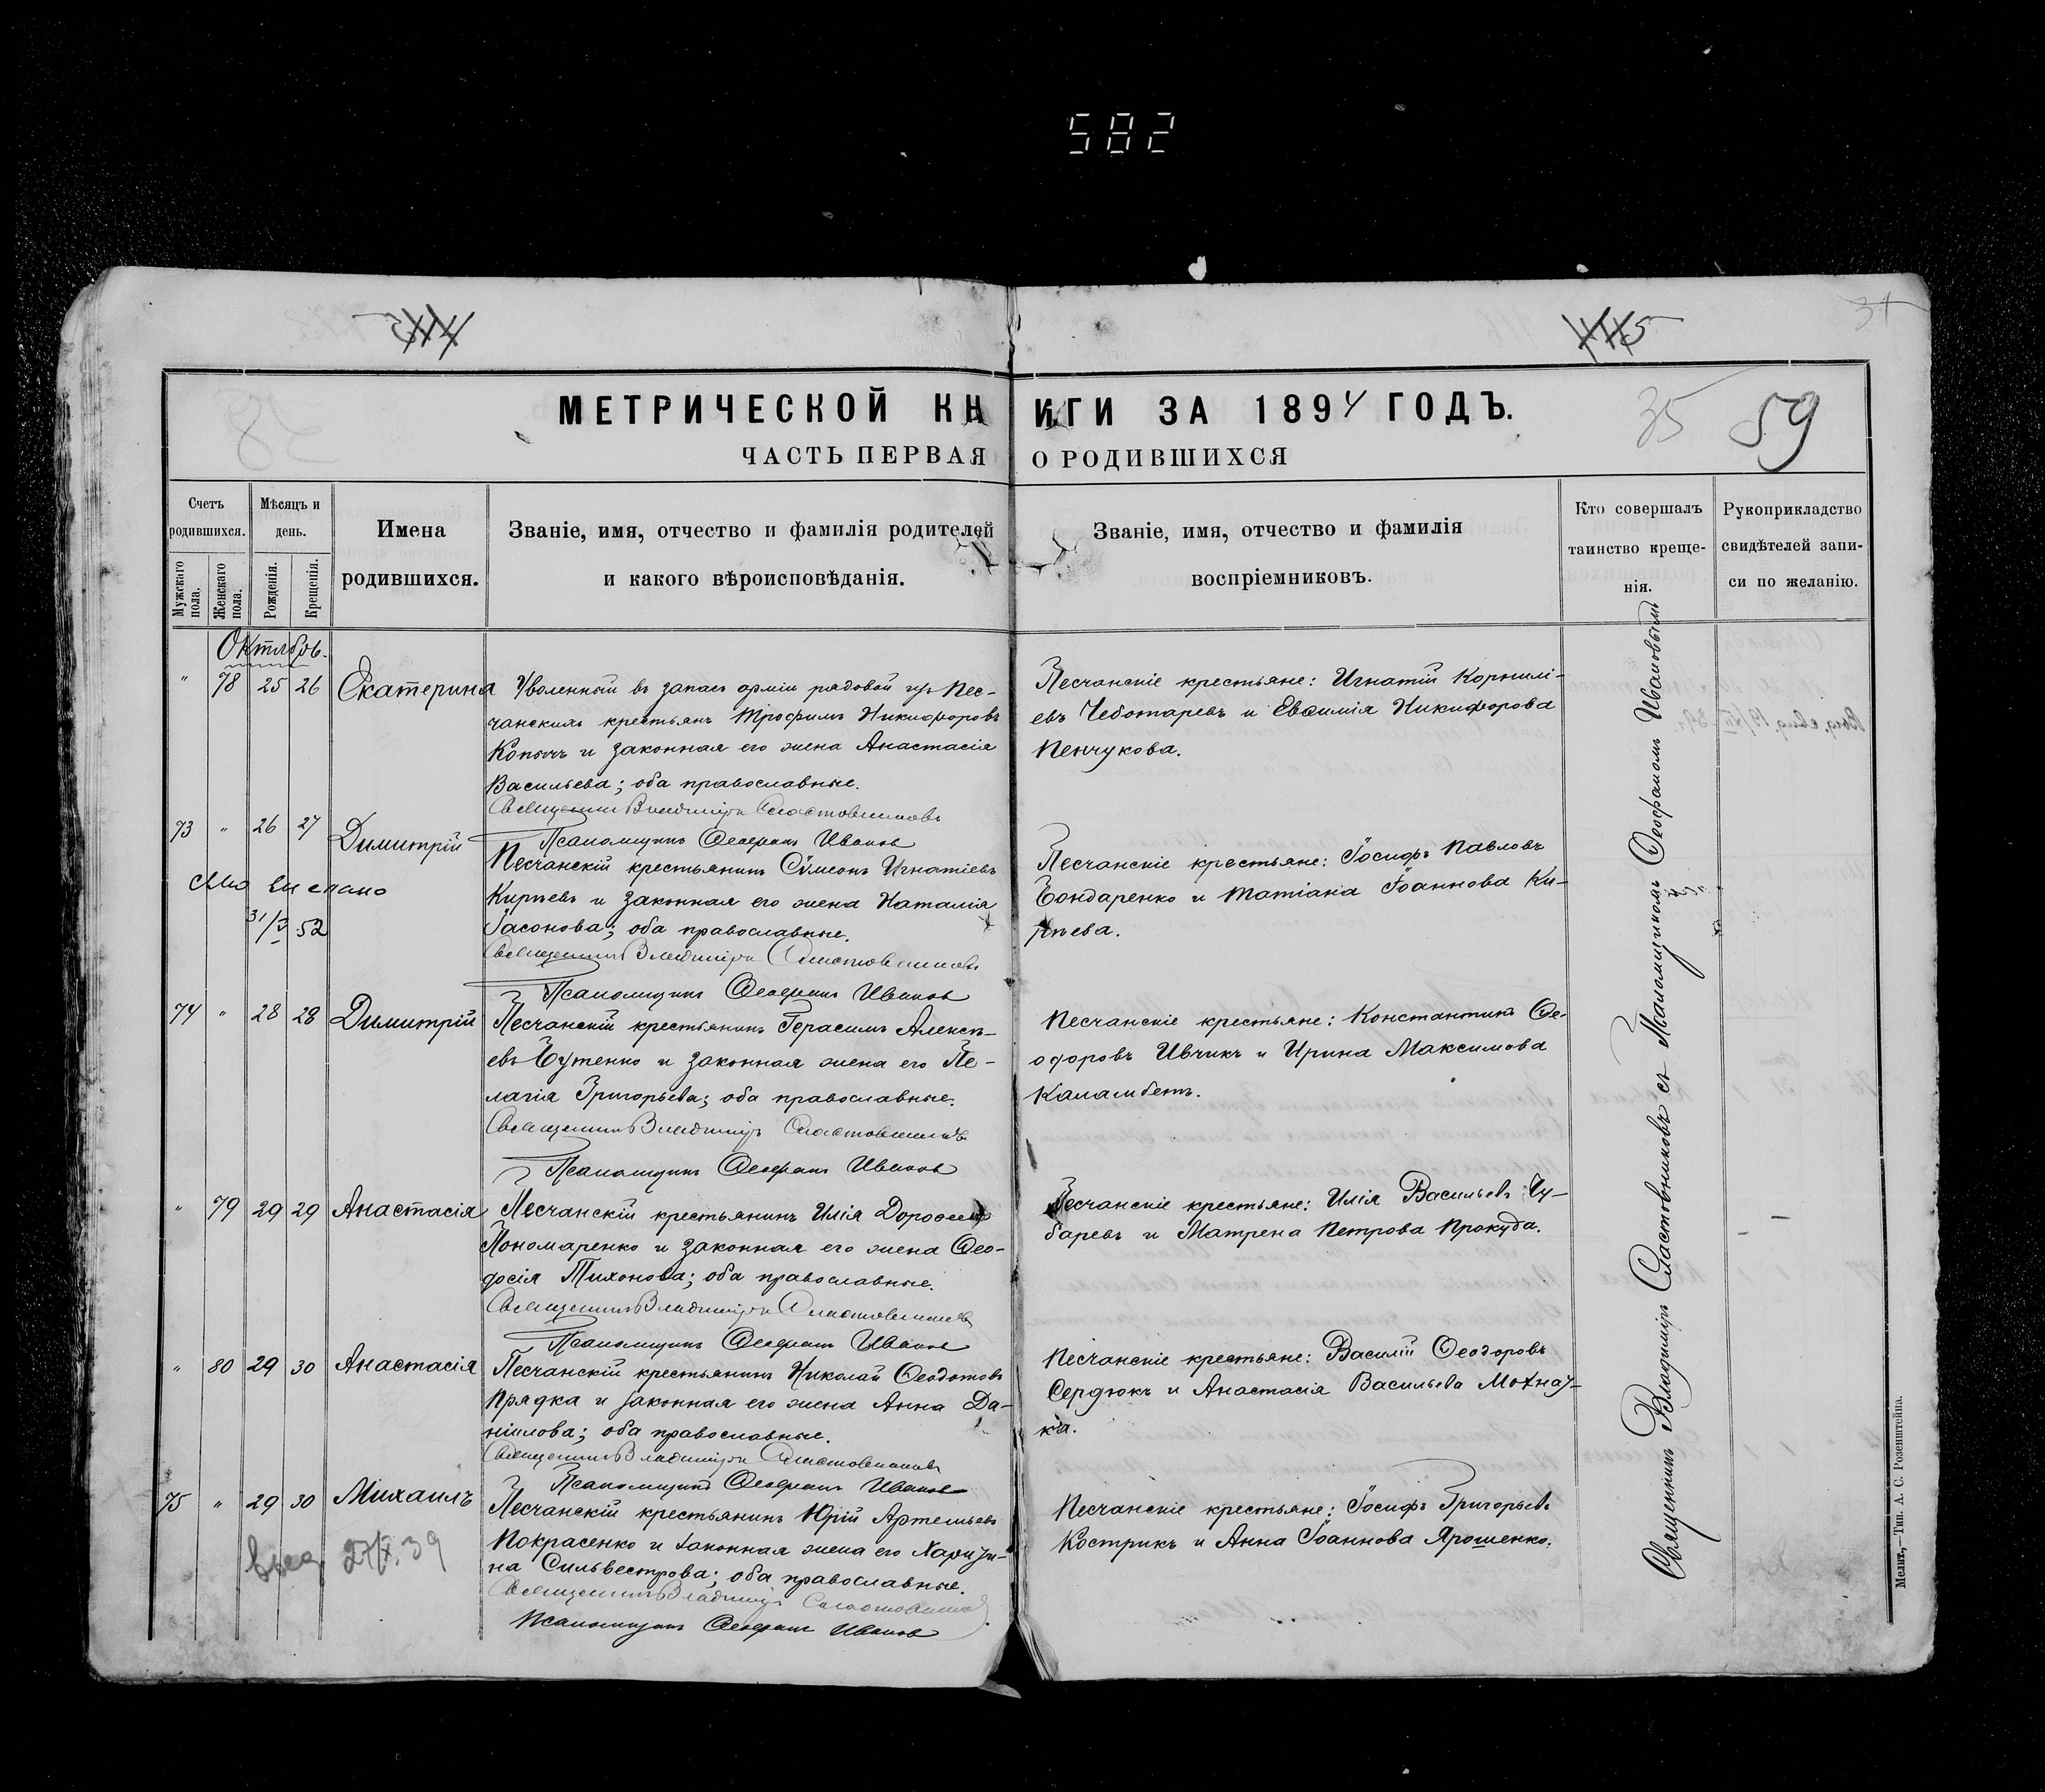 582
514
445
31
МЕТРИЧЕСКОЙ КНИГИ ЗА 1894 ГОДЪ.
35 59
ЧАСТЬ ПЕРВАЯ О РОДИВШИХСЯ
Счетъ родившихся.
Мужскаго пола.
Женскаго пола.
Мѣсяцъ и день.
Рожденія.
Крещенія.
Имена родившихся.
Званіе, имя, отчество и фамилія родителей
и какого вѣроисповѣданія.
Званіе, имя, отчество и фамилія
воспріемниковъ.
Кто совершалъ
таинство креще-
нія.
Рукоприкладство
свидѣтелей запи-
си по желанію.
Октябрь.
" 78 25 26 Екатерина
Уволенный въ запасъ арміи рядовой изъ Пес-
чанскихъ крестьянъ Трофимъ Никифоровъ
и законная его жена Анастасія
Васильева; оба православные.
Священникъ Владиміръ Сластовниковъ
Псаломщикъ Феофанъ Ивановъ
Песчанскіе крестьяне: Игнатій Корнилі-
евъ Чеботаревъ и Евѳимія Никифорова
Пенчукова.
73 " 26 27 Димитрій
31/3 52
Песчанскій крестьянинъ Сѵмеонъ Игнатіевъ
Кирѣевъ и законная его жена Наталія
Іасонова; оба православные.
Священникъ Владиміръ Сластовниковъ
Псаломщикъ Феофанъ Ивановъ
Песчанскіе крестьяне: Іосифъ Павловъ
Бондаренко и Татіана Іоаннова Ки-
рѣева.
74 " 28 28 Димитрій
Песчанскій крестьянинъ Герасимъ Алексѣ-
евъ Бутенко и законная жена его Пе-
лагія Григорьева; оба православные.
Священникъ Владиміръ Сластовниковъ
Псаломщикъ Феофанъ Ивановъ
Песчанскіе крестьяне: Константинъ Ѳе-
одоровъ Ивчикъ и Ирина Максимова
Каламбетъ.
" 79 29 29 Анастасія
Песчанскій крестьянинъ Илія Дороѳеевъ
Пономаренко и законная его жена Ѳео-
досія Тихонова; оба православные.
Священникъ Владиміръ Сластовниковъ
Псаломщикъ Феофанъ Ивановъ
Песчанскіе крестьяне: Илія Васильевъ Чу-
баревъ и Матрена Петрова Прокуда.
" 80 29 30 Анастасія
Песчанскій крестьянинъ Николай Ѳеодотовъ
Прядка и законная его жена Анна Да-
ніилова; оба православные.
Священникъ Владиміръ Сластовниковъ
Псаломщикъ Феофанъ Ивановъ
Песчанскіе крестьяне: Василій Ѳеодоровъ
Сердюкъ и Анастасія Васильева Мохнат-
ка.
75 " 29 30 Михаилъ
Песчанскій крестьянинъ Юрій Артемьевъ
Покрасенко и законная жена его Харити-
на Сильвестрова; оба православные.
Священникъ Владиміръ Сластовниковъ
Псаломщикъ Феофанъ Ивановъ
Песчанскіе крестьяне: Іосифъ Григорьевъ
Кострикъ и Анна Іоаннова Ярошенко.
Священникъ Владиміръ Сластовниковъ съ Псаломщикомъ Ѳеофаномъ Ивановымъ
Мелит.,—Тип. А. С. Розенштейна.